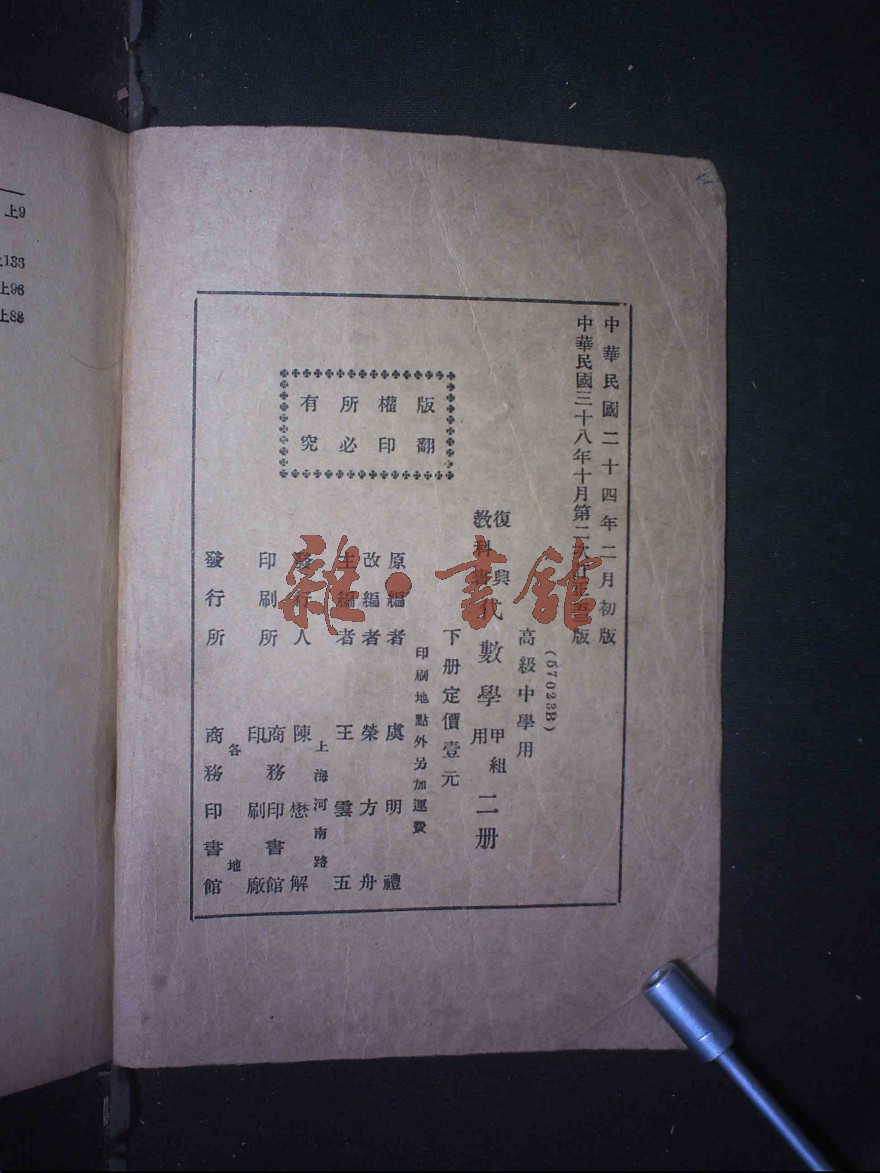 中華民國二十四年二月初版
中華民國三十八年十月第二次訂正
版
(57023B)
高級中學用
復興
教科書
代數學
甲組
用
二册
下册定價壹元
印刷地點外另加運費
版權所有
翻印必究
原編者 虞明禮
改編者 榮方舟
主編者 王雲五
上海河南路
發行人 陳懋解
印刷所 商務印書館
印刷廠
各地
發行所 商務印書館
上9
上136
上96
上88
雜·書館